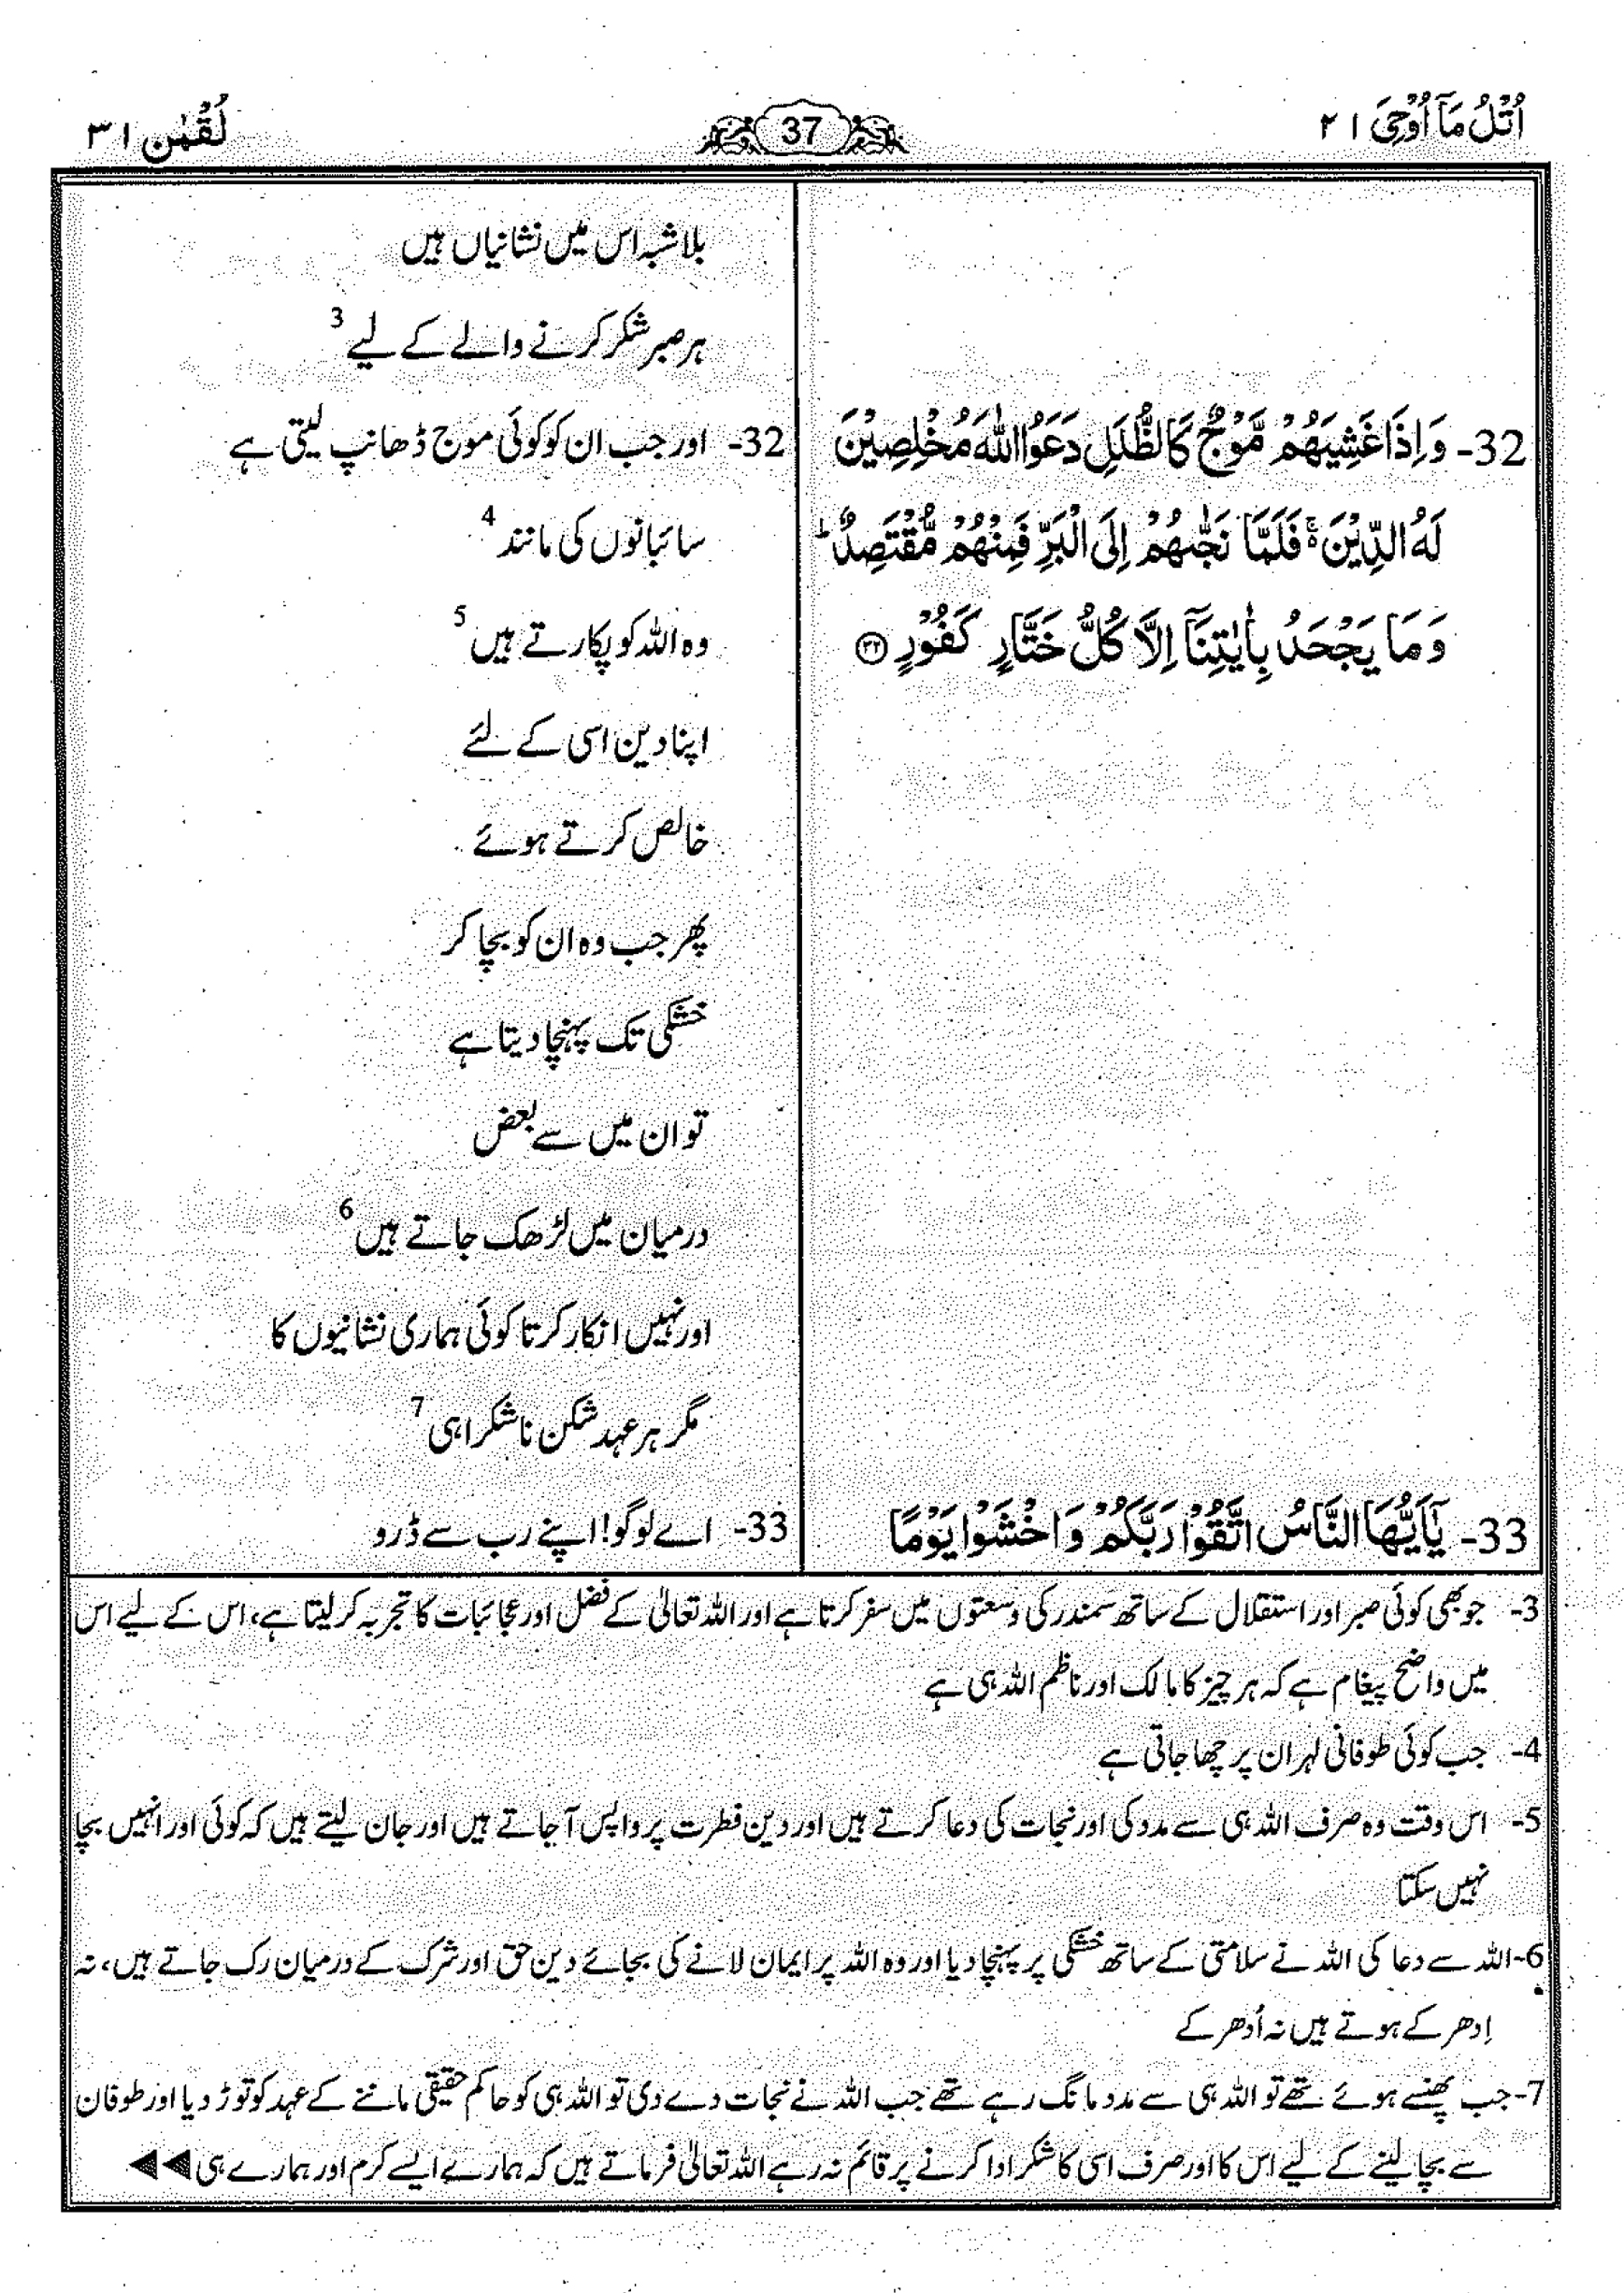 اُتْلُ مَآ اُوْحِیَ ٢١
37
لُقْمٰن ٣١
بلاشبہ اس میں نشانیاں ہیں
ہر صبر شکر کرنے والے کے لیے 3
32- وَ اِذَا غَشِیَهُمْ مَّوْجٌ کَالظُّلَلِ دَعَوُا اللّٰهَ مُخْلِصِیْنَ
لَهُ الدِّیْنَ ۚ۬ فَلَمَّا نَجّٰىهُمْ اِلَى الْبَرِّ فَمِنْهُمْ مُّقْتَصِدٌ ؕ
وَ مَا یَجْحَدُ بِاٰیٰتِنَآ اِلَّا کُلُّ خَتَّارٍ کَفُوْرٍ ﴿۳۲﴾
32- اور جب ان کو کوئی موج ڈھانپ لیتی ہے
سائبانوں کی مانند 4
وہ اللہ کو پکارتے ہیں 5
اپنا دین اسی کے لئے
خالص کرتے ہوئے
پھر جب وہ ان کو بچا کر
خشکی تک پہنچا دیتا ہے
تو ان میں سے بعض
درمیان میں لڑھک جاتے ہیں 6
اور نہیں انکار کرتا کوئی ہماری نشانیوں کا
مگر ہر عہد شکن ناشکرا ہی 7
33- یٰۤاَیُّهَا النَّاسُ اتَّقُوْا رَبَّکُمْ وَ اخْشَوْا یَوْمًا
33- اے لوگو! اپنے رب سے ڈرو
3- جو بھی کوئی صبر اور استقلال کے ساتھ سمندر کی وسعتوں میں سفر کرتا ہے اور اللہ تعالیٰ کے فضل اور عجائبات کا تجربہ کر لیتا ہے، اس کے لیے اس
میں واضح پیغام ہے کہ ہر چیز کا مالک اور ناظم اللہ ہی ہے
4- جب کوئی طوفانی لہر ان پر چھا جاتی ہے
5- اس وقت وہ صرف اللہ ہی سے مدد کی اور نجات کی دعا کرتے ہیں اور دین فطرت پر واپس آ جاتے ہیں اور جان لیتے ہیں کہ کوئی اور انہیں بچا
نہیں سکتا
6- اللہ سے دعا کی اللہ نے سلامتی کے ساتھ خشکی پر پہنچا دیا اور وہ اللہ پر ایمان لانے کی بجائے دین حق اور شرک کے درمیان رک جاتے ہیں، نہ
اِدھر کے ہوتے ہیں نہ اُدھر کے
7- جب پھنسے ہوئے تھے تو اللہ ہی سے مدد مانگ رہے تھے جب اللہ نے نجات دے دی تو اللہ ہی کو حاکم حقیقی ماننے کے عہد کو توڑ دیا اور طوفان
سے بچا لینے کے لیے اس کا اور صرف اسی کا شکر ادا کرنے پر قائم نہ رہے اللہ تعالیٰ فرماتے ہیں کہ ہمارے ایسے کرم اور ہمارے ہی ◀◀